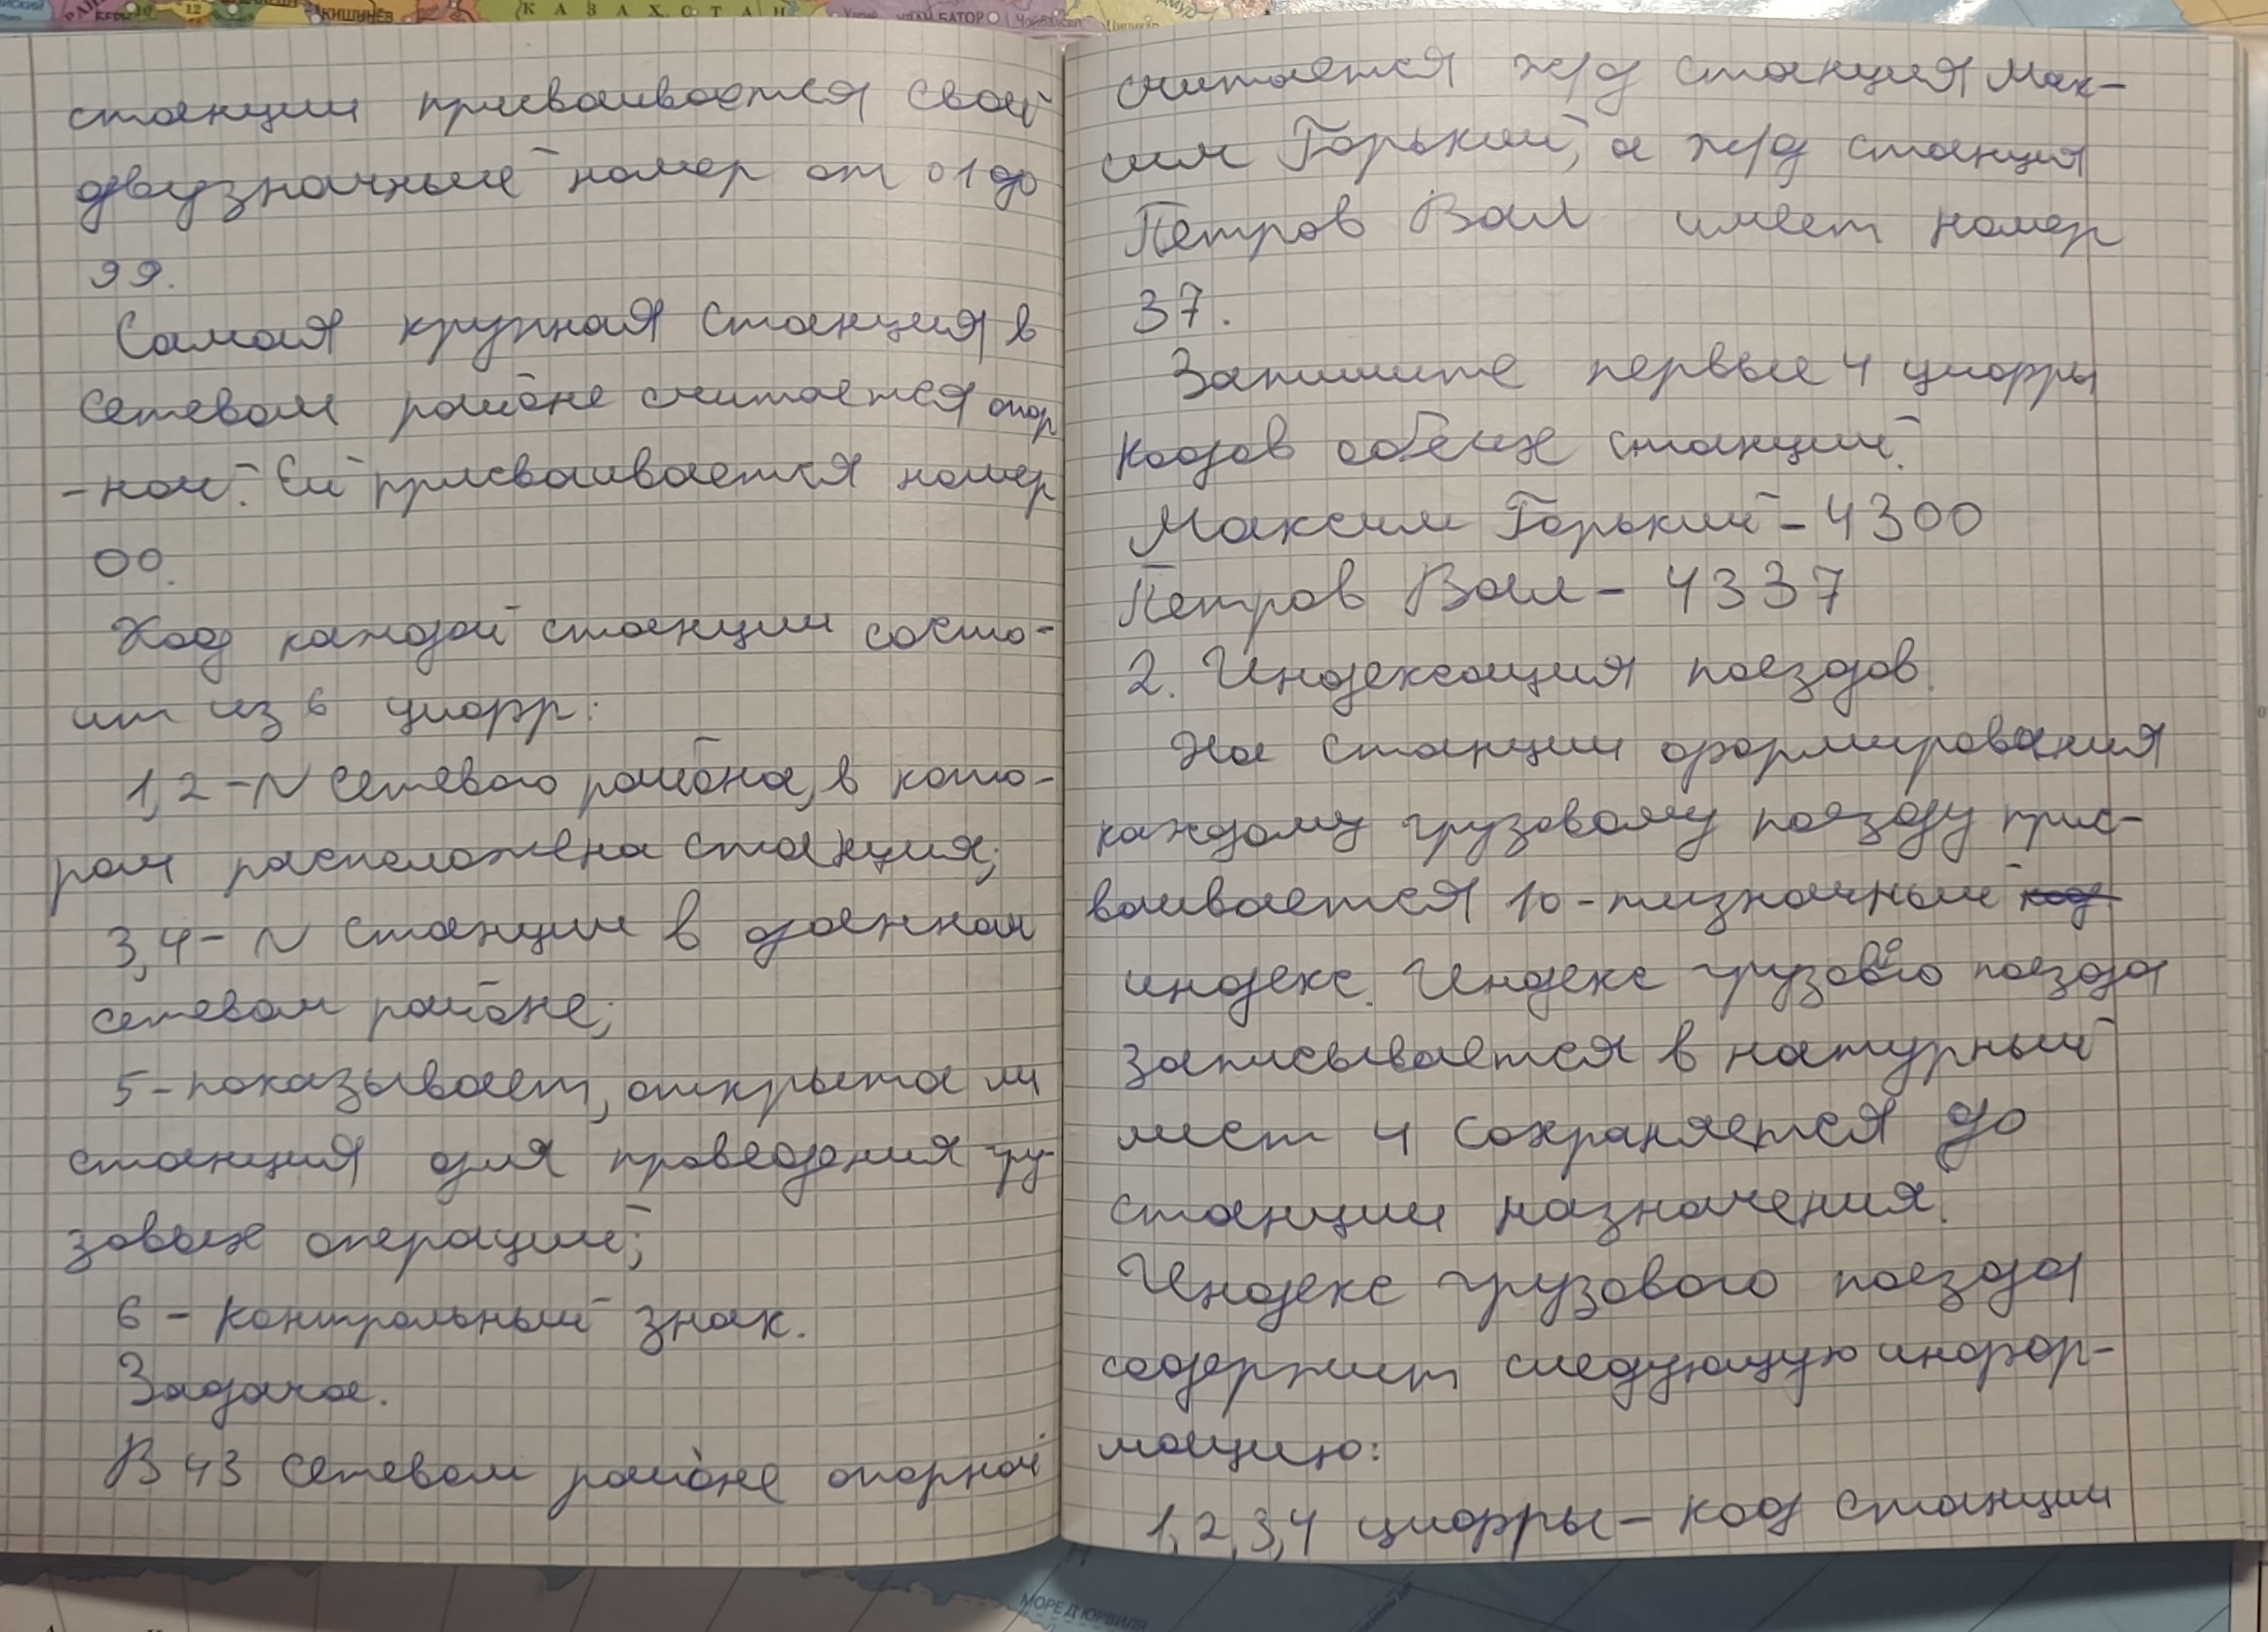 РАН
БЕРН
12
КИШИНЁВ
КАЗАХСТАН
УЛАН-БАТОР
станции присваивается свой
двузначный номер от 01 до
99.
Самая крупная станция в
сетевом районе считается опор
-ной. Ей присваивается номер
00.
Код каждой станции состо-
ит из 6 цифр:
1,2 - N сетевого района, в кото-
ром расположена станция;
3,4 - N станции в данном
сетевом районе;
5 - показывает, открыта ли
станция для проведения гру-
зовых операций;
6 - контрольный знак.
Задача.
В 43 сетевом районе опорной
считается ж/д станция Мак-
сим Горький, а ж/д станция
Петров Вал имеет номер
37.
Запишите первые 4 цифры
кодов обеих станций.
Максим Горький - 4300
Петров Вал - 4337
2. Индексация поездов.
На станции формирования
каждому грузовому поезду прис-
ваивается 10-тизначный код
индекс. Индекс грузового поезда
записывается в натурный
лист и сохраняется до
станции назначения.
Индекс грузового поезда
содержит следующую инфор-
мацию:
1,2,3,4 цифры - код станции
МОРЕ Д'ЮРВИЛЯ